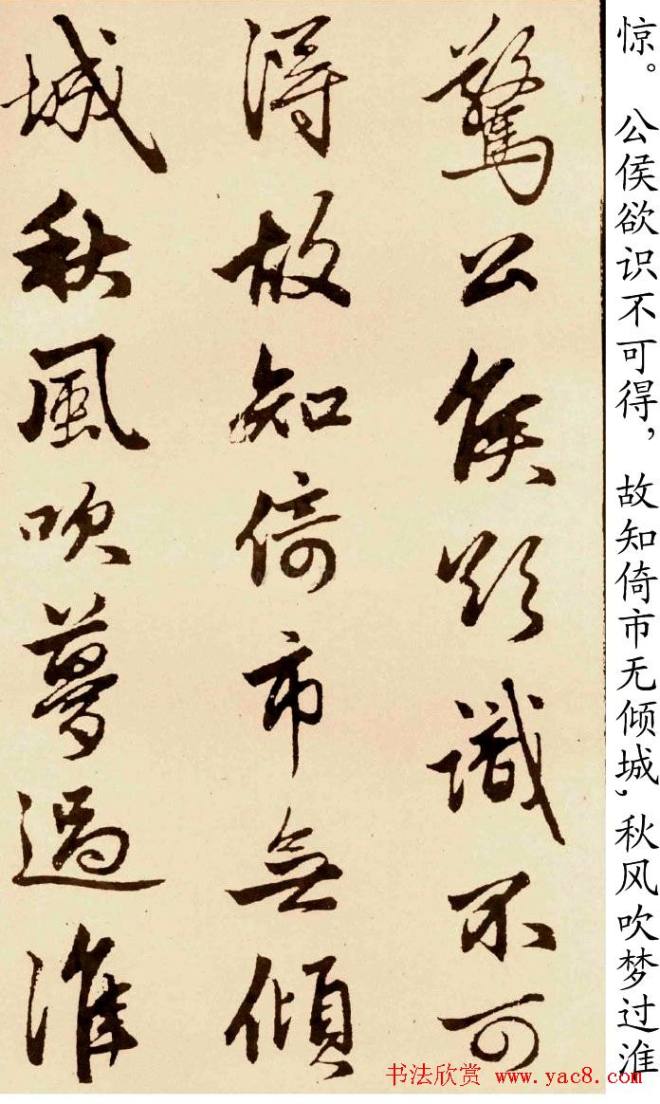 驚公侯欲識不可
得故知倚市無傾
城秋風吹夢過淮
惊。公侯欲识不可得，故知倚市无倾城，秋风吹梦过淮
书法欣赏 www.yac8.com